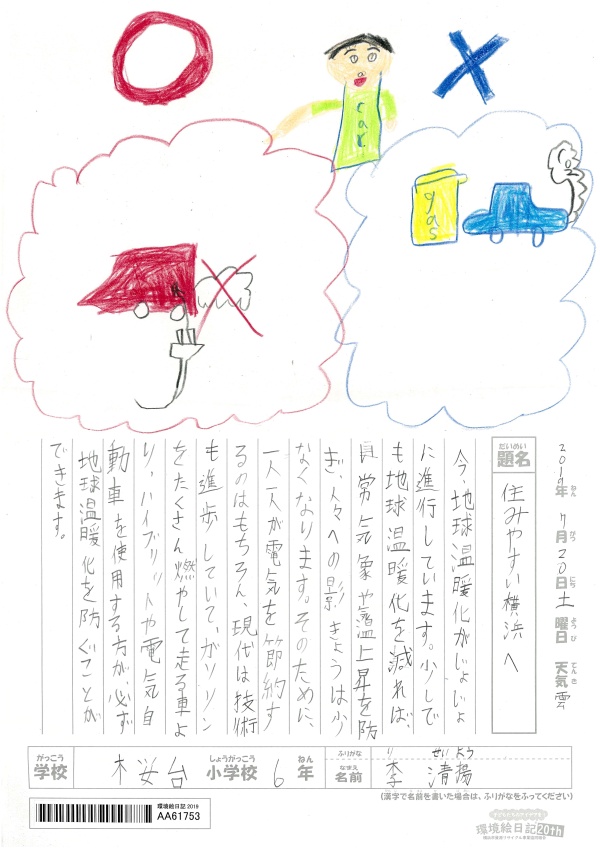 car
gas
CO2
2019年 7月20日 土曜日 天気 雲
ねん がつ にち よう び てん き
だいめい
題名
住みやすい横浜へ
今、地球温暖化がじょじょ
に進行しています。少しで
も地球温暖化を減れば、
異常気象や温上昇を防
ぎ、人々への影きょうは少
なくなります。そのために、
一人一人が電気を節約す
るのはもちろん、現代は技術
も進歩していて、ガソリン
をたくさん燃やして走る車よ
り、ハイブリットや電気自
動車を使用する方が、必ず
地球温暖化を防ぐことが
できます。
がっこう
学校
桜台
しょうがっこう
小学校
6
ねん
年
ふりがな
なまえ
名前
り せいよう
李 清揚
(漢字で名前を書いた場合は、ふりがなをふってください)
環境絵日記 2019
AA61753
環境絵日記20th